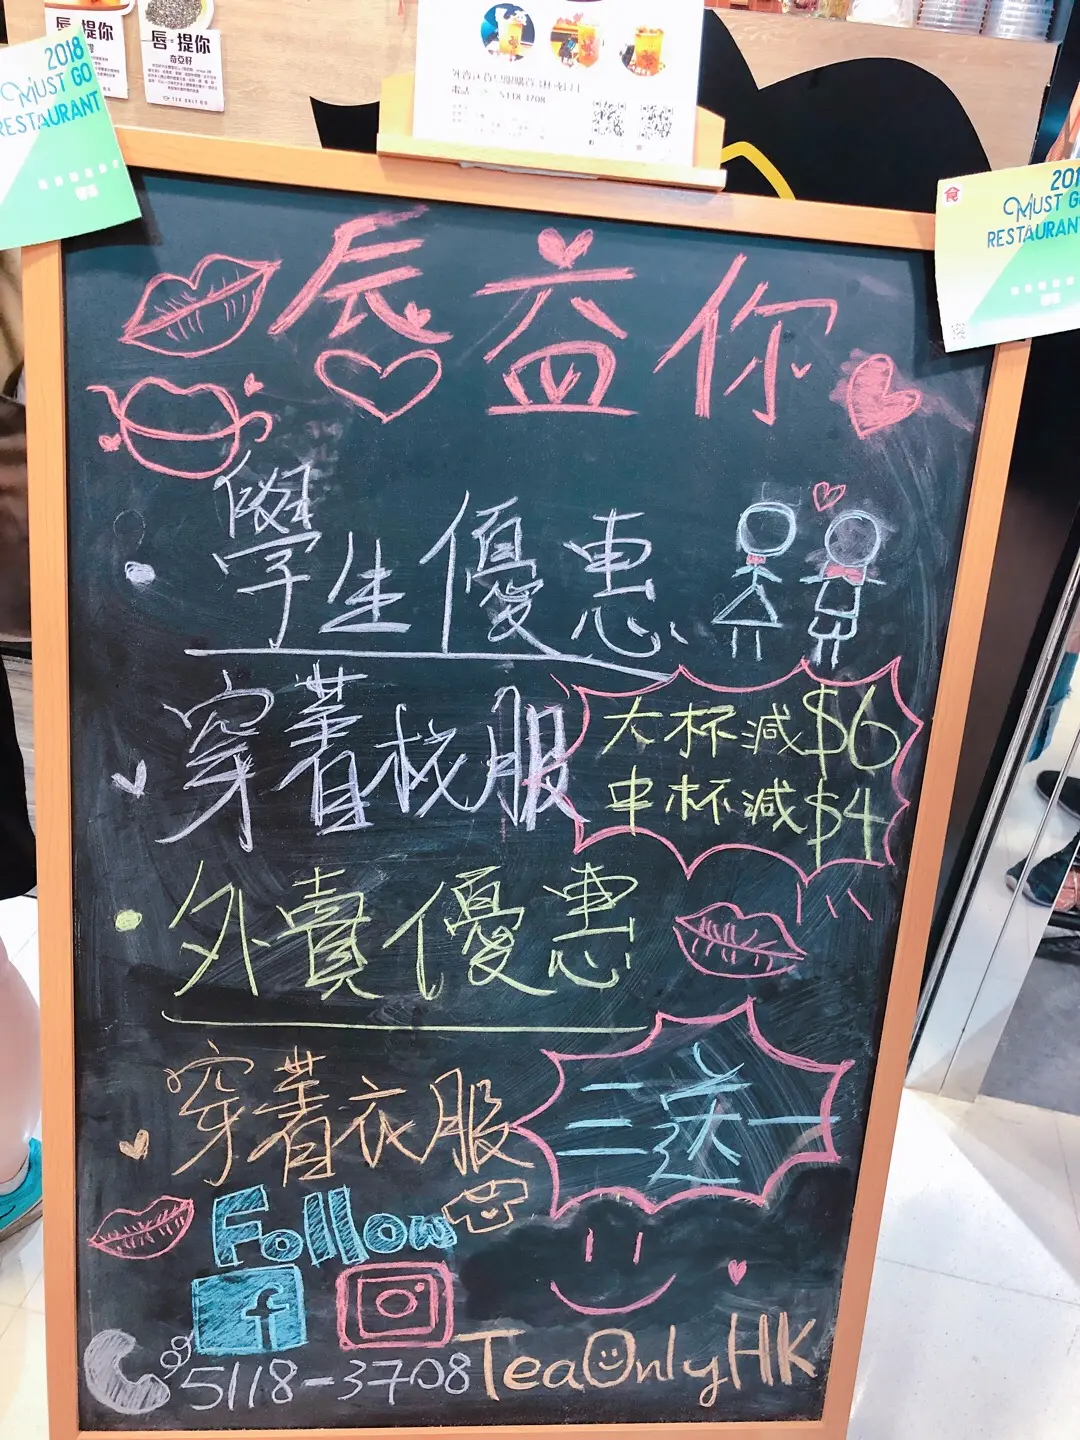 2018
MUST GO
RESTAURANT
唇·提你
唇·提你
奇亞籽
TEA ONLY
電話
5118 3708
MUST GO
RESTAURANT
唇益你
學生優惠
穿着校服
大杯減$6
中杯減$4
外賣優惠
穿着衣服
三送一
Follow
f
5118-3708
TeaOnlyHK